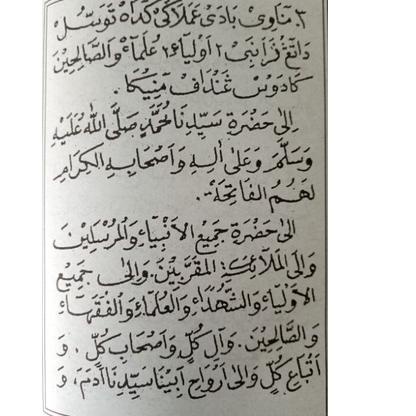 ٣. مَناوِى بَادَى عَمَلَاكَى كَدَاه تَوَسُّل
دَاتَڠ فَرَا نَبِى ٢ اَوْلِيَاء ٢ عُلَمَاء وَالصَّالِحِيْنَ
كَادَوْس ڠَنْدَاف مَنِيْكَا .
اِلىٰ حَضْرَةِ سَيِّدِنَا مُحَمَّدٍ صَلَّى اللهُ عَلَيْهِ
وَسَلَّمَ وَعَلىٰ اٰلِهِ وَاَصْحَابِهِ الكِرَامِ
لَهُمُ الفَاتِحَةْ .
اِلىٰ حَضْرَةِ جَمِيْعِ الاَنْبِيَاءِ وَالمُرْسَلِيْنَ
وَاِلَى المَلَائِكَةِ المُقَرَّبِيْنَ . وَاِلىٰ جَمِيْعِ
الاَوْلِيَاءِ وَالشُّهَدَاءِ وَالعُلَمَاءِ وَالفُقَهَاءِ
وَالصَّالِحِيْنَ . وَآلِ كُلٍّ وَاَصْحَابِ كُلٍّ . وَ
اَتْبَاعِ كُلٍّ وَاِلىٰ اَرْوَاحِ اَبِيْنَا سَيِّدِنَا آدَمَ ، وَ